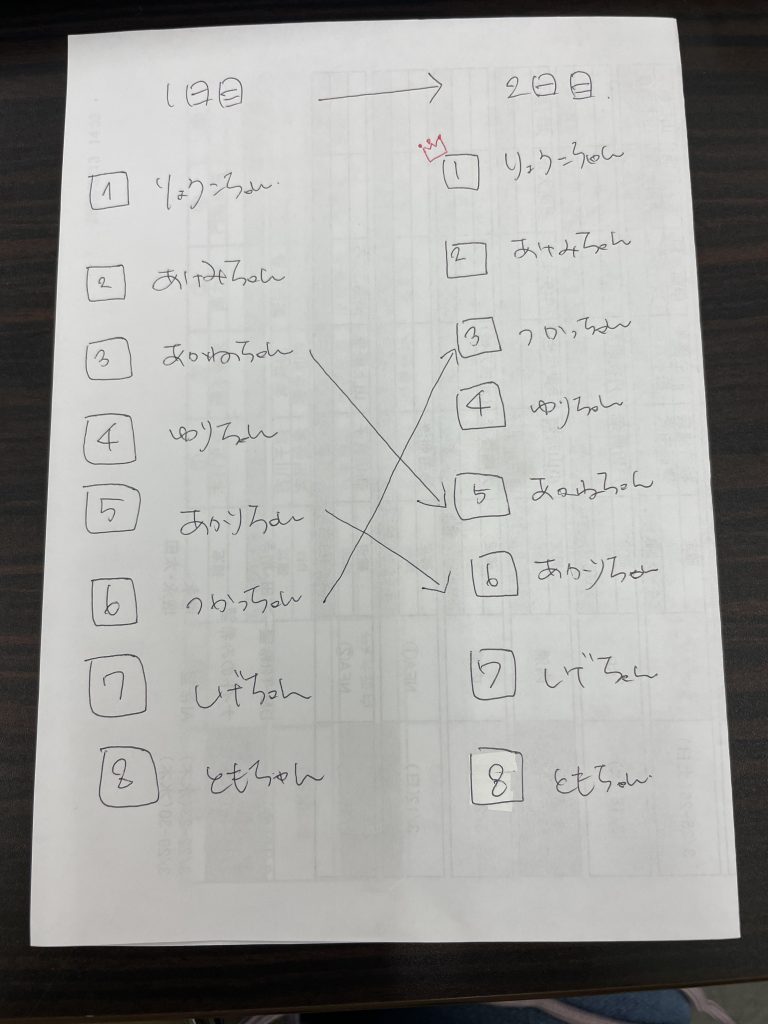 1日目 → 2日目
1 りょうこちゃん 1 りょうこちゃん
2 あけみちゃん 2 あけみちゃん
3 あかねちゃん 3 つかっちゃん
4 ゆりちゃん 4 ゆりちゃん
5 あかりちゃん 5 あかねちゃん
6 つかっちゃん 6 あかりちゃん
7 しげちゃん 7 しげちゃん
8 ともちゃん 8 ともちゃん